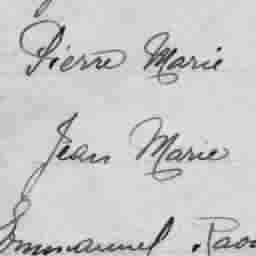 Pierre Marie
Jean Marie
Emmanuel